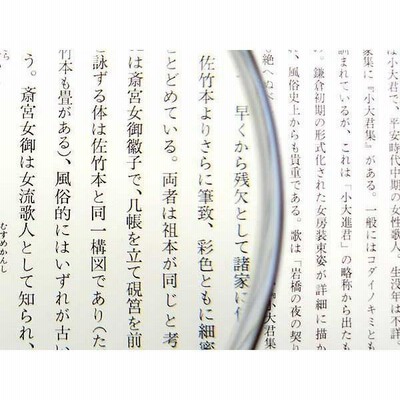 は小大君で、平安時代中期の女性歌人。生没年は不詳。
家集に『小大君集』がある。一般にはコダイノキミとも
訓まれているが、これは「小大進君」の略称から出たも
。鎌倉初期の形式化された女房装束姿が詳細に描か
、風俗史上からも貴重である。歌は「岩橋の夜の契り
絶へぬべ
小大君集
早くから残欠として諸家に
佐竹本よりさらに筆致、彩色ともに細密
とどめている。両者は祖本が同じと考
は斎宮女御徽子で、几帳を立て硯筥を前
と詠ずる体は佐竹本と同一構図であり(た
竹本も畳がある)、風俗的にはいずれが古い
う。斎宮女御は女流歌人として知られ、
むすめかんし